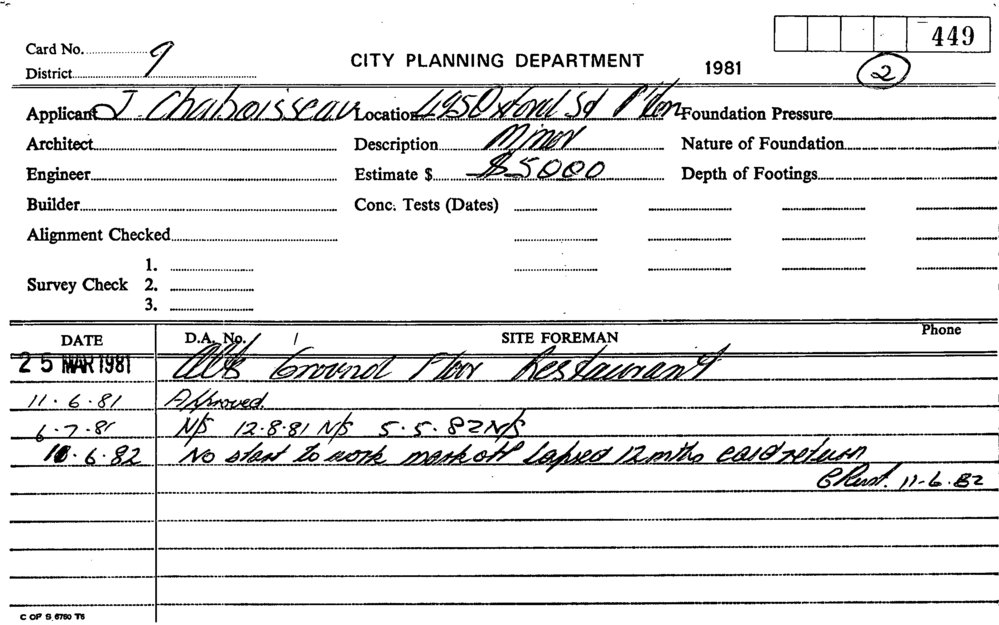 449
Card No. 9
CITY PLANNING DEPARTMENT 1981 2
District
Applicant J. Chaboisseau Location 495 Oxford St P'ton Foundation Pressure
Architect Description Minor Nature of Foundation
Engineer Estimate $ $5000 Depth of Footings
Builder Conc. Tests (Dates)
Alignment Checked
1.
Survey Check 2.
3.
DATE D.A. No. SITE FOREMAN Phone
25 MAR 1981 Alts Ground Floor Restaurant
11.6.81 Approved.
6.7.81 N/S 12.8.81 N/S 5.5.82 N/S
10.6.82 No start to work mark off Lapsed 12 mths card return
11-6.82
C OF S 6760 T6